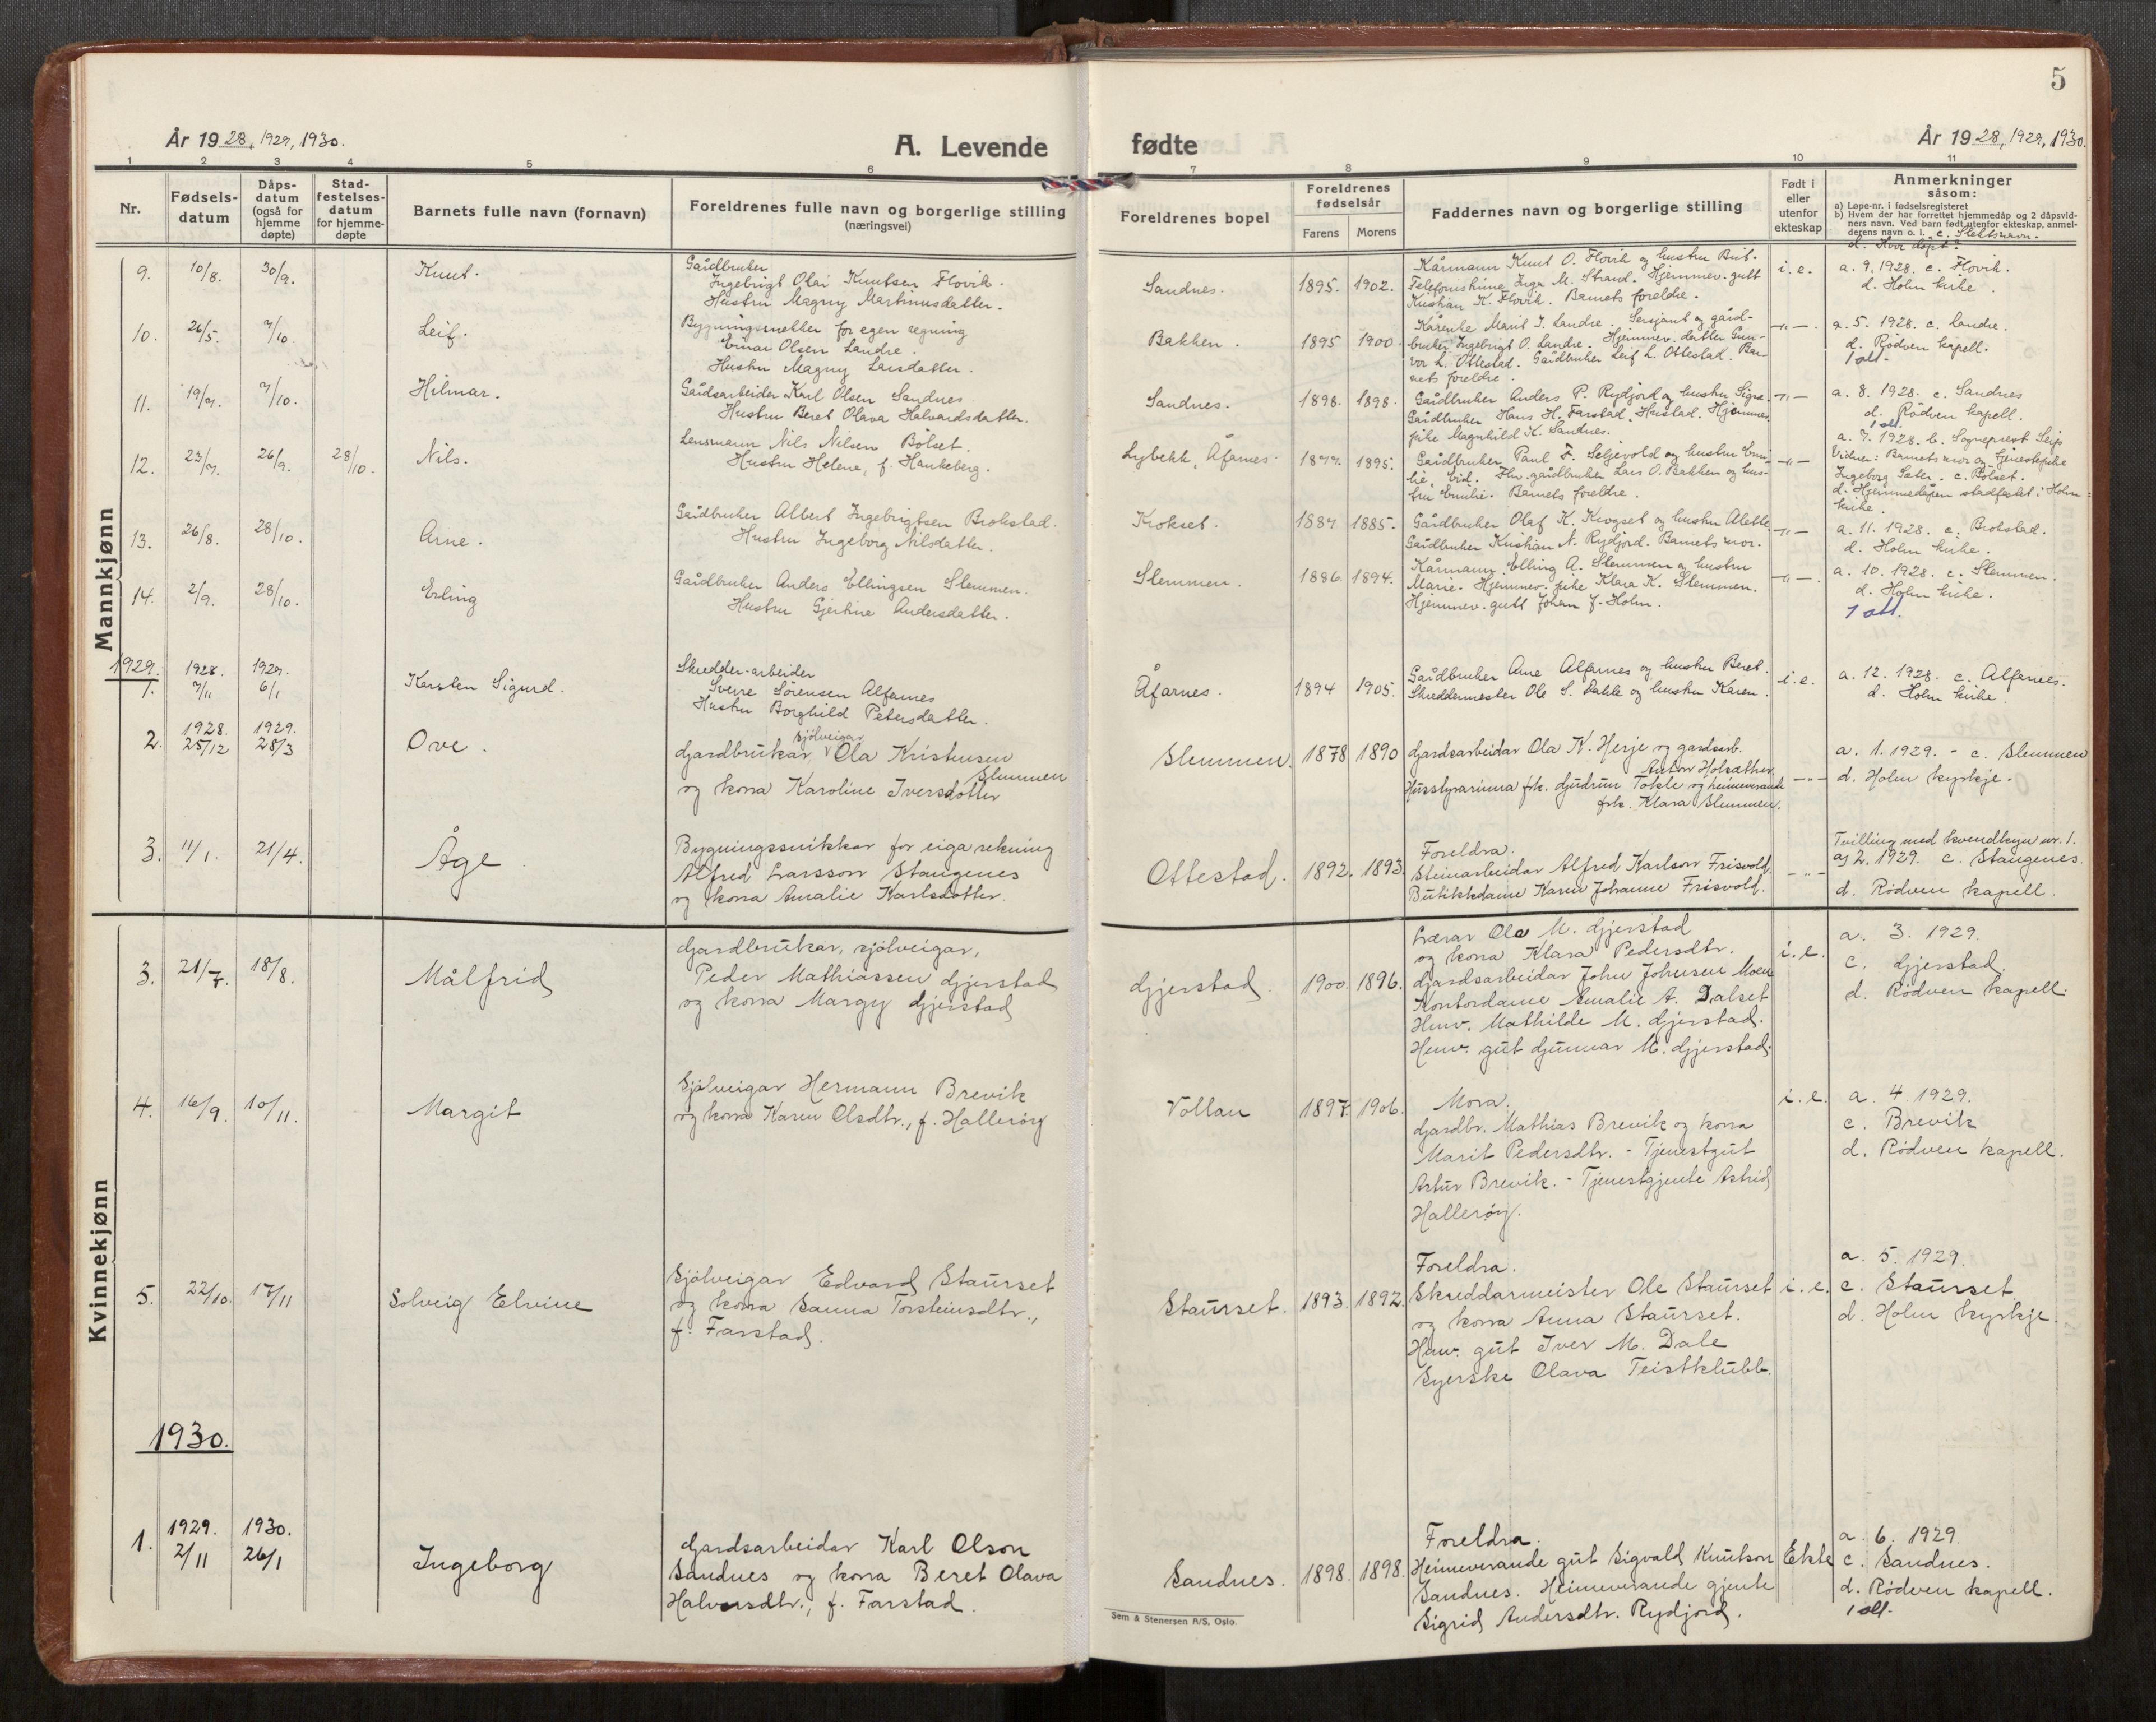 5
År 1928, 1929, 1930.
A. Levende
fødte
År 1928, 1929, 1930.
1 2 3 4 5 6 7 8 9 10 11
Nr.
Fødsels-
datum
Dåps-
datum
(også for
hjemme
døpte)
Stad-
festelses-
datum
for hjemme-
døpte
Barnets fulle navn (fornavn)
Foreldrenes fulle navn og borgerlige stilling
(næringsvei)
Foreldrenes bopel
Foreldrenes
fødselsår
Farens Morens
Faddernes navn og borgerlige stilling
Født i
eller
utenfor
ekteskap
Anmerkninger
såsom:
a) Løpe-nr. i fødselsregisteret
b) Hvem der har forrettet hjemmedåp og 2 dåpsvid-
ners navn. Ved barn født utenfor ekteskap, anmel-
derens navn o. l. c. Slektsnavn.
d. Hvor døpt?
Mannkjønn
9. 10/8. 30/9. Knut.
Gårdbruker
Ingebrigt Olai Knutsen Flovik.
Hustru Magny Martinusdatter.
Sandnes. 1895. 1902.
Kårmann Knut O. Flovik og hustru Brit.
Telefonistinne Inga M. Strand. Hjemmev. gutt
Kristian K. Flovik. Barnets foreldre.
i. e.
a. 9. 1928. c. Flovik.
d. Holm kirke.
10. 26/5. 7/10. Leif.
Bygningssnekker for egen regning
Einar Olsen Landre.
Hustru Magny Larsdatter.
Bakken. 1895 1900.
Kårenke Marit I. Landre. Sersjant og gård-
bruker Ingebrigt O. Landre. Hjemmev. datter Gun-
vor L. Ottestad. Gårdbruker Leif L. Ottestad. Bar-
nets foreldre.
-"-.
a. 5. 1928. c. Landre.
d. Rødven kapell.
1 att.
11. 19/7. 7/10. Hilmar.
Gårdsarbeider Karl Olsen Sandnes
Hustru Beret Olava Halvardsdatter.
Sandnes. 1898. 1898.
Gårdbruker Anders P. Rydjord og hustru Signe.
Gårdbruker Hans H. Farstad, Hustad. Hjemmev.
pike Magnhild K. Sandnes.
-"-
a. 8. 1928. c. Sandnes
d. Rødven kapell.
1 att.
12. 23/7. 26/9. 28/10. Nils.
Lensmann Nils Nilsen Bolset.
Hustru Helene, f. Haukeberg.
Lybekk, Åfarnes. 1877. 1895.
Gårdbruker Paul F. Seljevold og hustru Emi-
lie, Eid. Fhv. gårdbruker Lars O. Bakken og hus-
tru Emilie. Barnets foreldre.
-"-
a. 7. 1928. b. Sogneprest Seip
Vidner: Barnets mor og tjenestepike
Ingeborg Sæter. c. Bolset.
d. Hjemmedåpen stadfestet i Holm
kirke.
13. 26/8. 28/10. Arne.
Gårdbruker Albert Ingebrigtsen Brokstad.
Hustru Ingeborg Nilsdatter.
Krokset. 1887 1885.
Gårdbruker Olaf K. Krogset og hustru Alette
Gårdbruker Kristian N. Rydjord. Barnets mor.
-"-
a. 11. 1928. c. Brokstad.
d. Holm kirke.
14. 2/9. 28/10. Erling
Gårdbruker Anders Ellingsen Slemmen.
Hustru Gjertine Andersdatter.
Slemmen. 1886. 1894.
Kårmann Elling A. Slemmen og hustru
Marie. Hjemmev. pike Klara K. Slemmen.
Hjemmev. gutt Johan J. Holm.
-"-.
a. 10. 1928. c. Slemmen.
d. Holm kirke.
1 att.
1929.
1. 1928. 7/11 1929. 6/1 Karsten Sigurd.
Skredder-arbeider
Sverre Sørensen Alfarnes
Hustru Borghild Petersdatter.
Åfarnes. 1894 1905.
Gårdbruker Arne Alfarnes og hustru Beret.
Skreddermester Ole S. Dahle og hustru Karen.
i. e.
a. 12. 1928. c. Alfarnes.
d. Holm kirke.
2. 1928. 25/12 1929. 28/3 Ove.
sjølveigar
Gardbrukar, Ola Kristensen
Slemmen
og kona Karoline Iversdotter
Slemmen. 1878 1890
Gardsarbeidar Ola K. Herje og gardsarb.
Anton Holsæther
Husstyrarinna frk. Gudrun Tokle og heimeverande
frk. Klara Slemmen.
-"-
a. 1. 1929. - c. Slemmen
d. Holm kyrkje.
3. 11/1. 21/4. Åge
Bygningssnikkar for eiga rekning
Alfred Larsson Stangenes
og kona Amalie Karlsdotter.
Ottestad. 1892. 1893.
Foreldra.
Steinarbeidar Alfred Karlson Frisvold.
Butikkdame Karen Johanne Frisvold.
-"-
Tvilling med kvendkyn nr. 1.
a. 2. 1929. c. Stangenes.
d. Rødven kapell.
Kvinnekjønn
3. 21/7. 18/8. Målfrid
Gardbrukar, sjølveigar,
Peder Mathiassen Gjerstad
og kona Margy Gjerstad
Gjerstad. 1900. 1896.
Lærar Ola M. Gjerstad
og kona Klara Pedersdtr.
Gardsarbeidar John Johnsen Moen
Kontordame Amalie A. Dalset
Hmv. Mathilde M. Gjerstad.
Hmv. gut Gunnar M. Gjerstad.
i. e.
a. 3. 1929.
c. Gjerstad.
d. Rødven kapell.
4. 16/9. 10/11. Margit
Sjølveigar Hermann Brevik
og kona Karen Olsdtr., f. Hallerøy
Vollan 1897. 1906.
Mora.
Gardbr. Mathias Brevik og kona
Marit Pedersdtr. - Tjenestgut
Artur Brevik. - Tjenestgjente Astrid
Hallerøy.
i. e.
a. 4 1929.
c. Brevik
d. Rødven kapell.
5. 22/10. 17/11 Solveig Elvine
Sjølveigar Edvard Staurset
og kona Sanna Torsteinsdtr.,
f. Farstad.
Staurset. 1893. 1892.
Foreldra.
Skreddarmeister Ole Staurset
og kona Anna Staurset.
Hmv. gut Iver M. Dale
Syerske Olava Teistklubb.
i. e.
a. 5. 1929.
c. Staurset
d. Holm kyrkje.
1930.
1. 1929. 2/11 1930. 26/1 Ingeborg
Gardsarbeidar Karl Olson
Sandnes og kona Beret Olava
Halvorsdtr., f. Farstad.
Sandnes. 1898. 1898.
Foreldra.
Heimeverande gut Sigvald Knutson
Sandnes. Heimeverande gjente
Sigrid Andersdtr. Rydjord.
Ekte
a. 6. 1929.
c. Sandnes.
d. Rødven kapell.
1 att.
Sem & Stenersen A/S, Oslo.